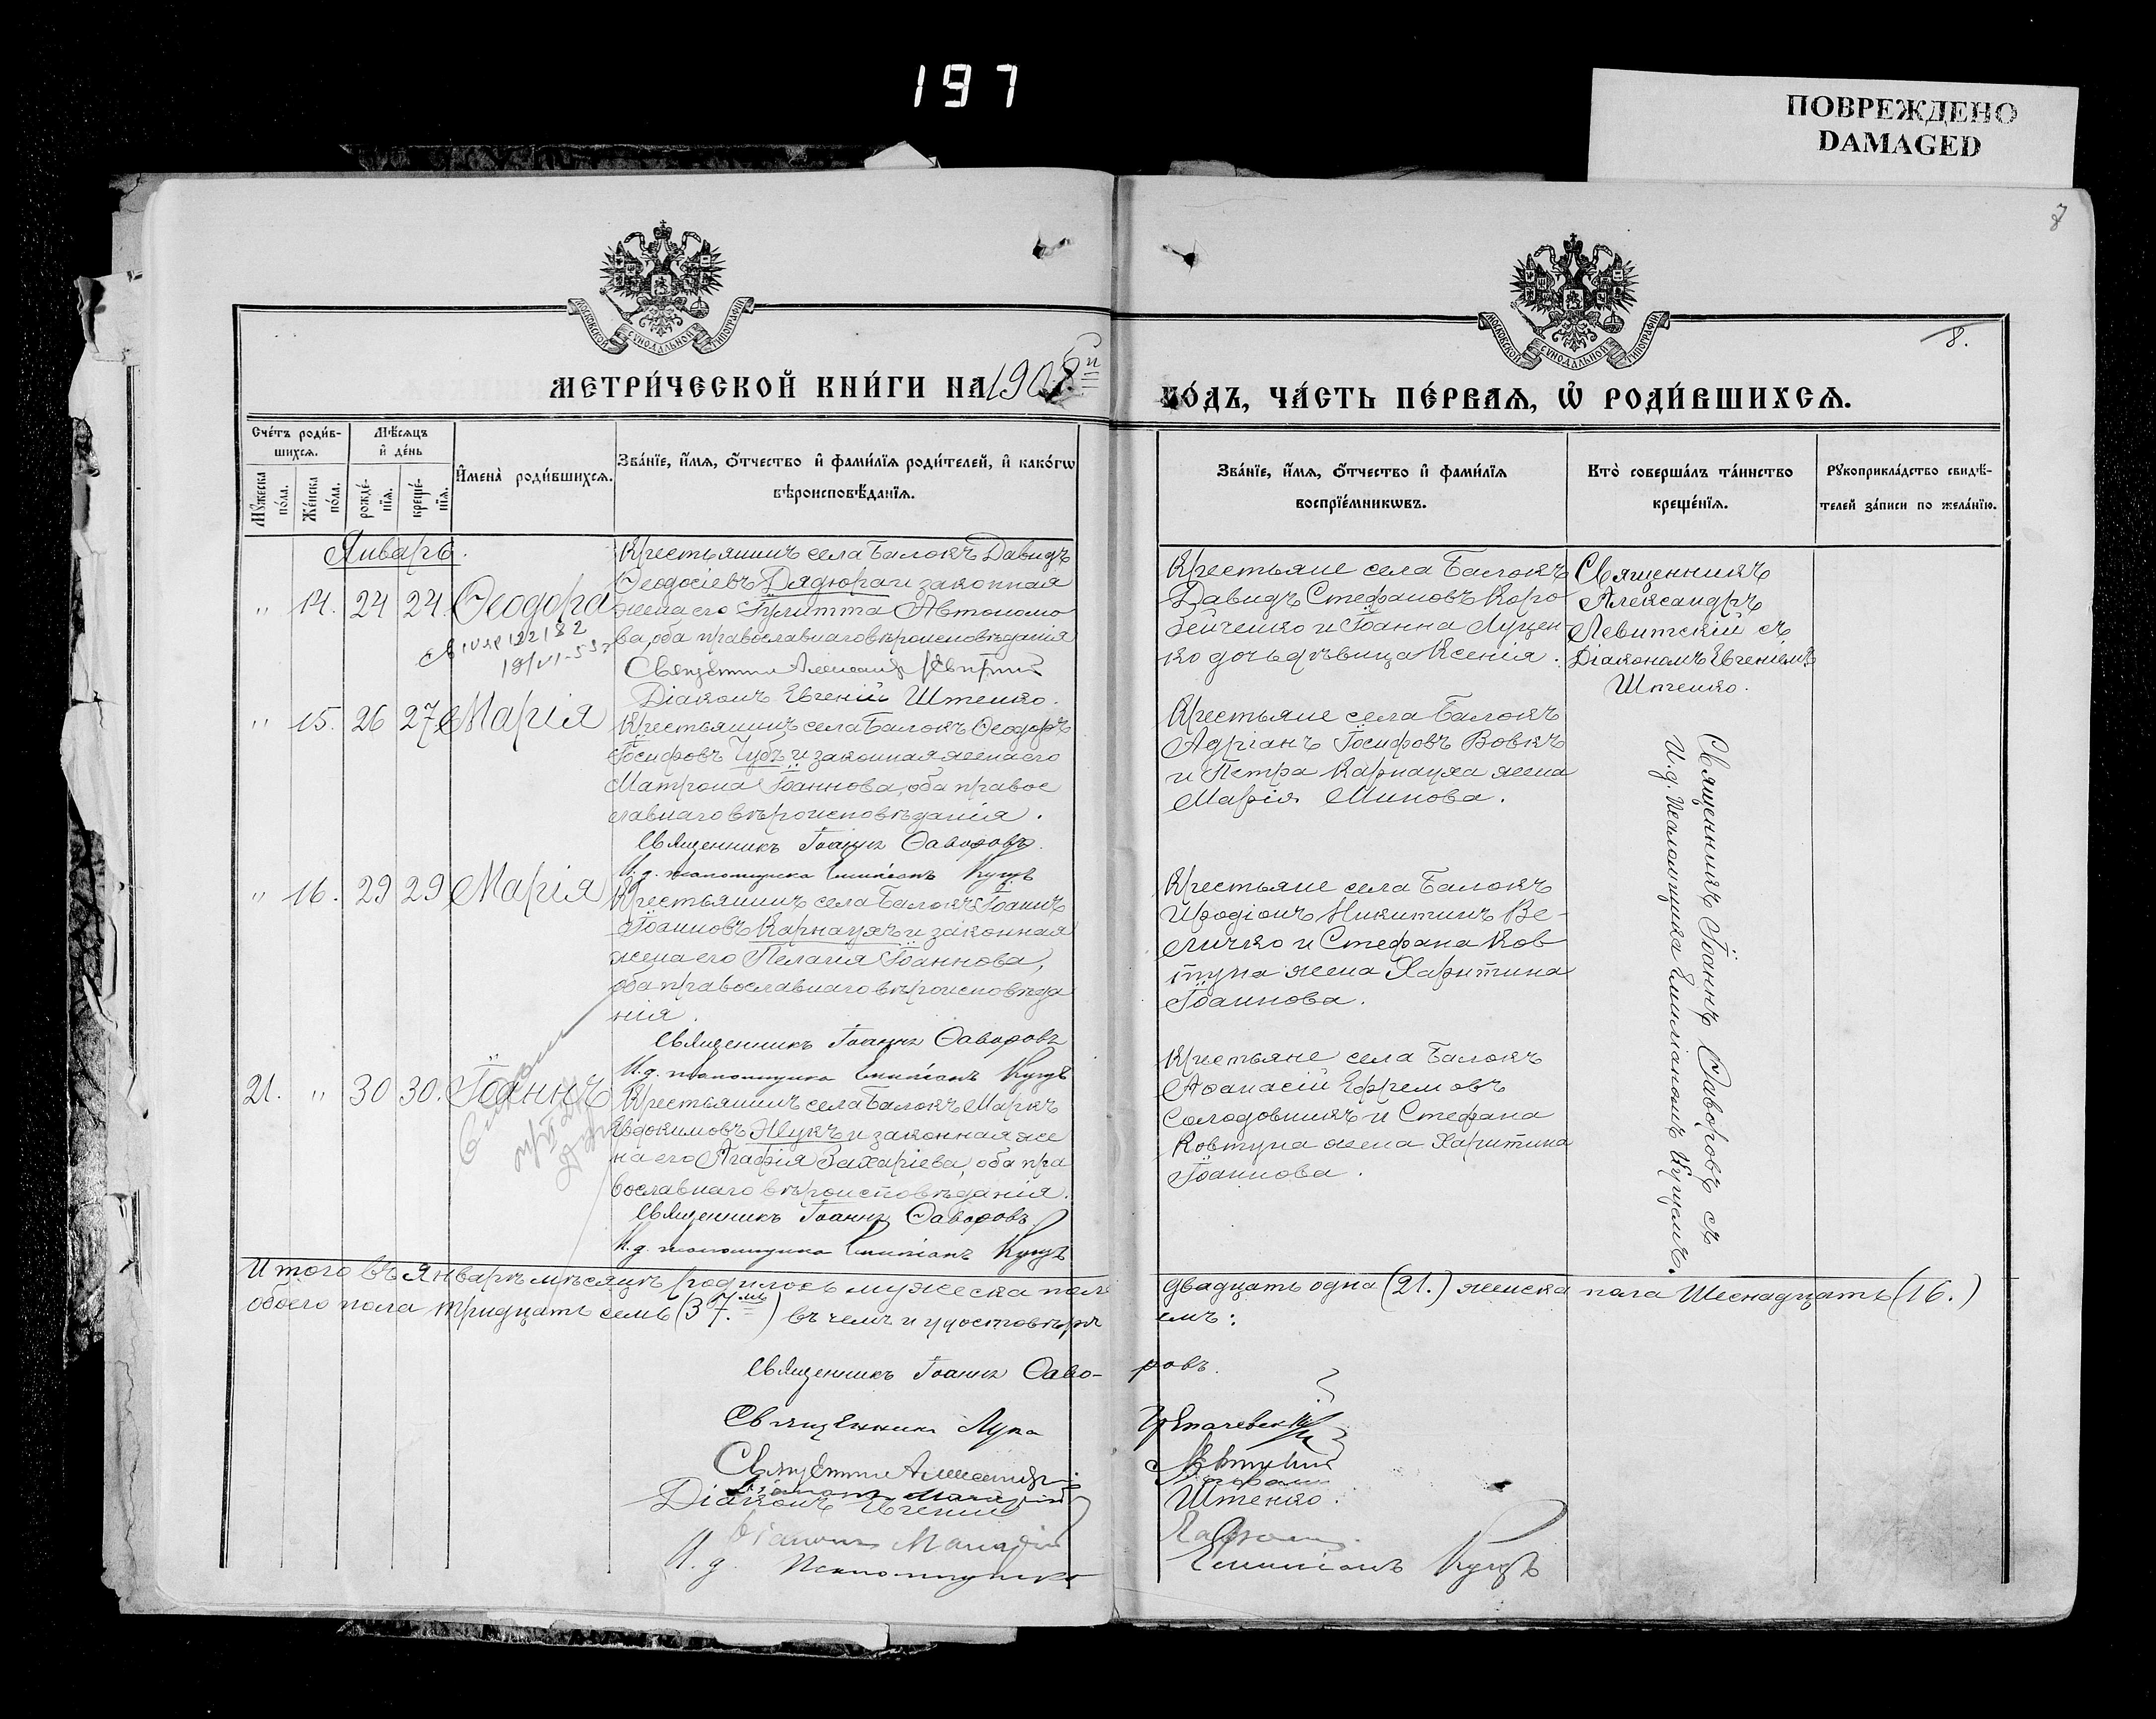 197
ПОВРЕЖДЕНО
DAMAGED
7
8.
МОСКОВСКОЙ СѴНОДАЛЬНОЙ ТИПОГРАФІИ
МОСКОВСКОЙ СѴНОДАЛЬНОЙ ТИПОГРАФІИ
МЕТРИ́ЧЕСКОЙ КНИ́ГИ НА 1908й
ГО́ДЪ, ЧА́СТЬ ПЕ́РВАѦ, Ѡ҆ РОДИ́ВШИХСѦ.
Сче́тъ роди́в-
шихсѧ.
Мꙋ́жеска по́ла.
Же́нска по́ла.
Мѣ́сѧцъ
и҆ де́нь
рожде́-
нїѧ.
креще́-
нїѧ.
И҆мена̀ роди́вшихсѧ.
Зва́нїе, и҆́мѧ, ѻ҆́тчество и҆ фами́лїѧ роди́телей, и҆ како́гѡ
вѣроисповѣ́данїѧ.
Зва́нїе, и҆́мѧ, ѻ҆́тчество и҆ фами́лїѧ
воспрїе́мникѡвъ.
Кто̀ соверша́лъ та́инство
креще́нїѧ.
Рꙋкоприкла́дство свидѣ́-
телей за́писи по жела́нїю.
Январь.
" 14. 24 24. Ѳеодора
18/VI-53
Крестьянинъ села Балокъ Давидъ
Ѳеодосіевъ Дядюра и законная
жена его Іулитта Автономо
ва, оба православнаго вѣроисповѣданія
Священникъ Александръ Левитскій
Діаконъ Евгеній Штепко.
Крестьяне села Балокъ
Давидъ Стефановъ Коро
бейченко и Іоанна Луцен-
ко дочь дѣвица Ксенія.
Священникъ
Александръ
Левитскій съ
Діакономъ Евгеніемъ
Штепко.
" 15. 26 27. Марія
Крестьянинъ села Балокъ Ѳеодоръ
Іосифовъ Чубъ и законная жена его
Матрона Іоаннова, оба правос
лавнаго вѣроисповѣданія.
Священникъ Іоаннъ Ѳаворовъ.
И.д. псаломщика Емиліанъ Куцъ
Крестьяне села Балокъ
Адріанъ Іосифовъ Вовкъ
и Петра Карнауха жена
Марія Минова.
Священникъ Іоаннъ Ѳаворовъ съ
И.д. псаломщика Емиліаномъ Куцомъ.
" 16. 29 29 Марія
Крестьянинъ села Балокъ Іоаннъ
Іоанновъ Карнаухъ и законная
жена его Пелагія Іоаннова,
оба православнаго вѣроисповѣда
нія.
Священникъ Іоаннъ Ѳаворовъ
И.д. псаломщика Емиліанъ Куцъ
Крестьяне села Балокъ
Иродіонъ Никитинъ Ве-
личко и Стефана Ков
туна жена Харитина
Іоаннова.
21. " 30 30. Іоаннъ
Крестьянинъ села Балокъ Маркъ
Евдокимовъ Жукъ и законная же
на его Агафія Захаріева, оба пра
вославнаго вѣроисповѣданія.
Священникъ Іоаннъ Ѳаворовъ
И.д. псаломщика Емиліанъ Куцъ
Крестьяне села Балокъ
Аѳанасій Ефремовъ
Солодовникъ и Стефана
Ковтуна жена Харитина
Іоаннова.
Итого въ январѣ мѣсяцѣ родилось мужеска пола двадцать одна (21.) женска пола шеснадцать (16.)
обоего пола тридцать семь (37.мь) въ чемъ и удостовѣря емъ:
Священникъ Іоаннъ Ѳаво- ровъ.
Священникъ Лука
Священникъ Александръ Левитскій
Діаконъ Евгеній Штепко.
Діаконъ
И.д. Псаломщика Емиліанъ Куцъ